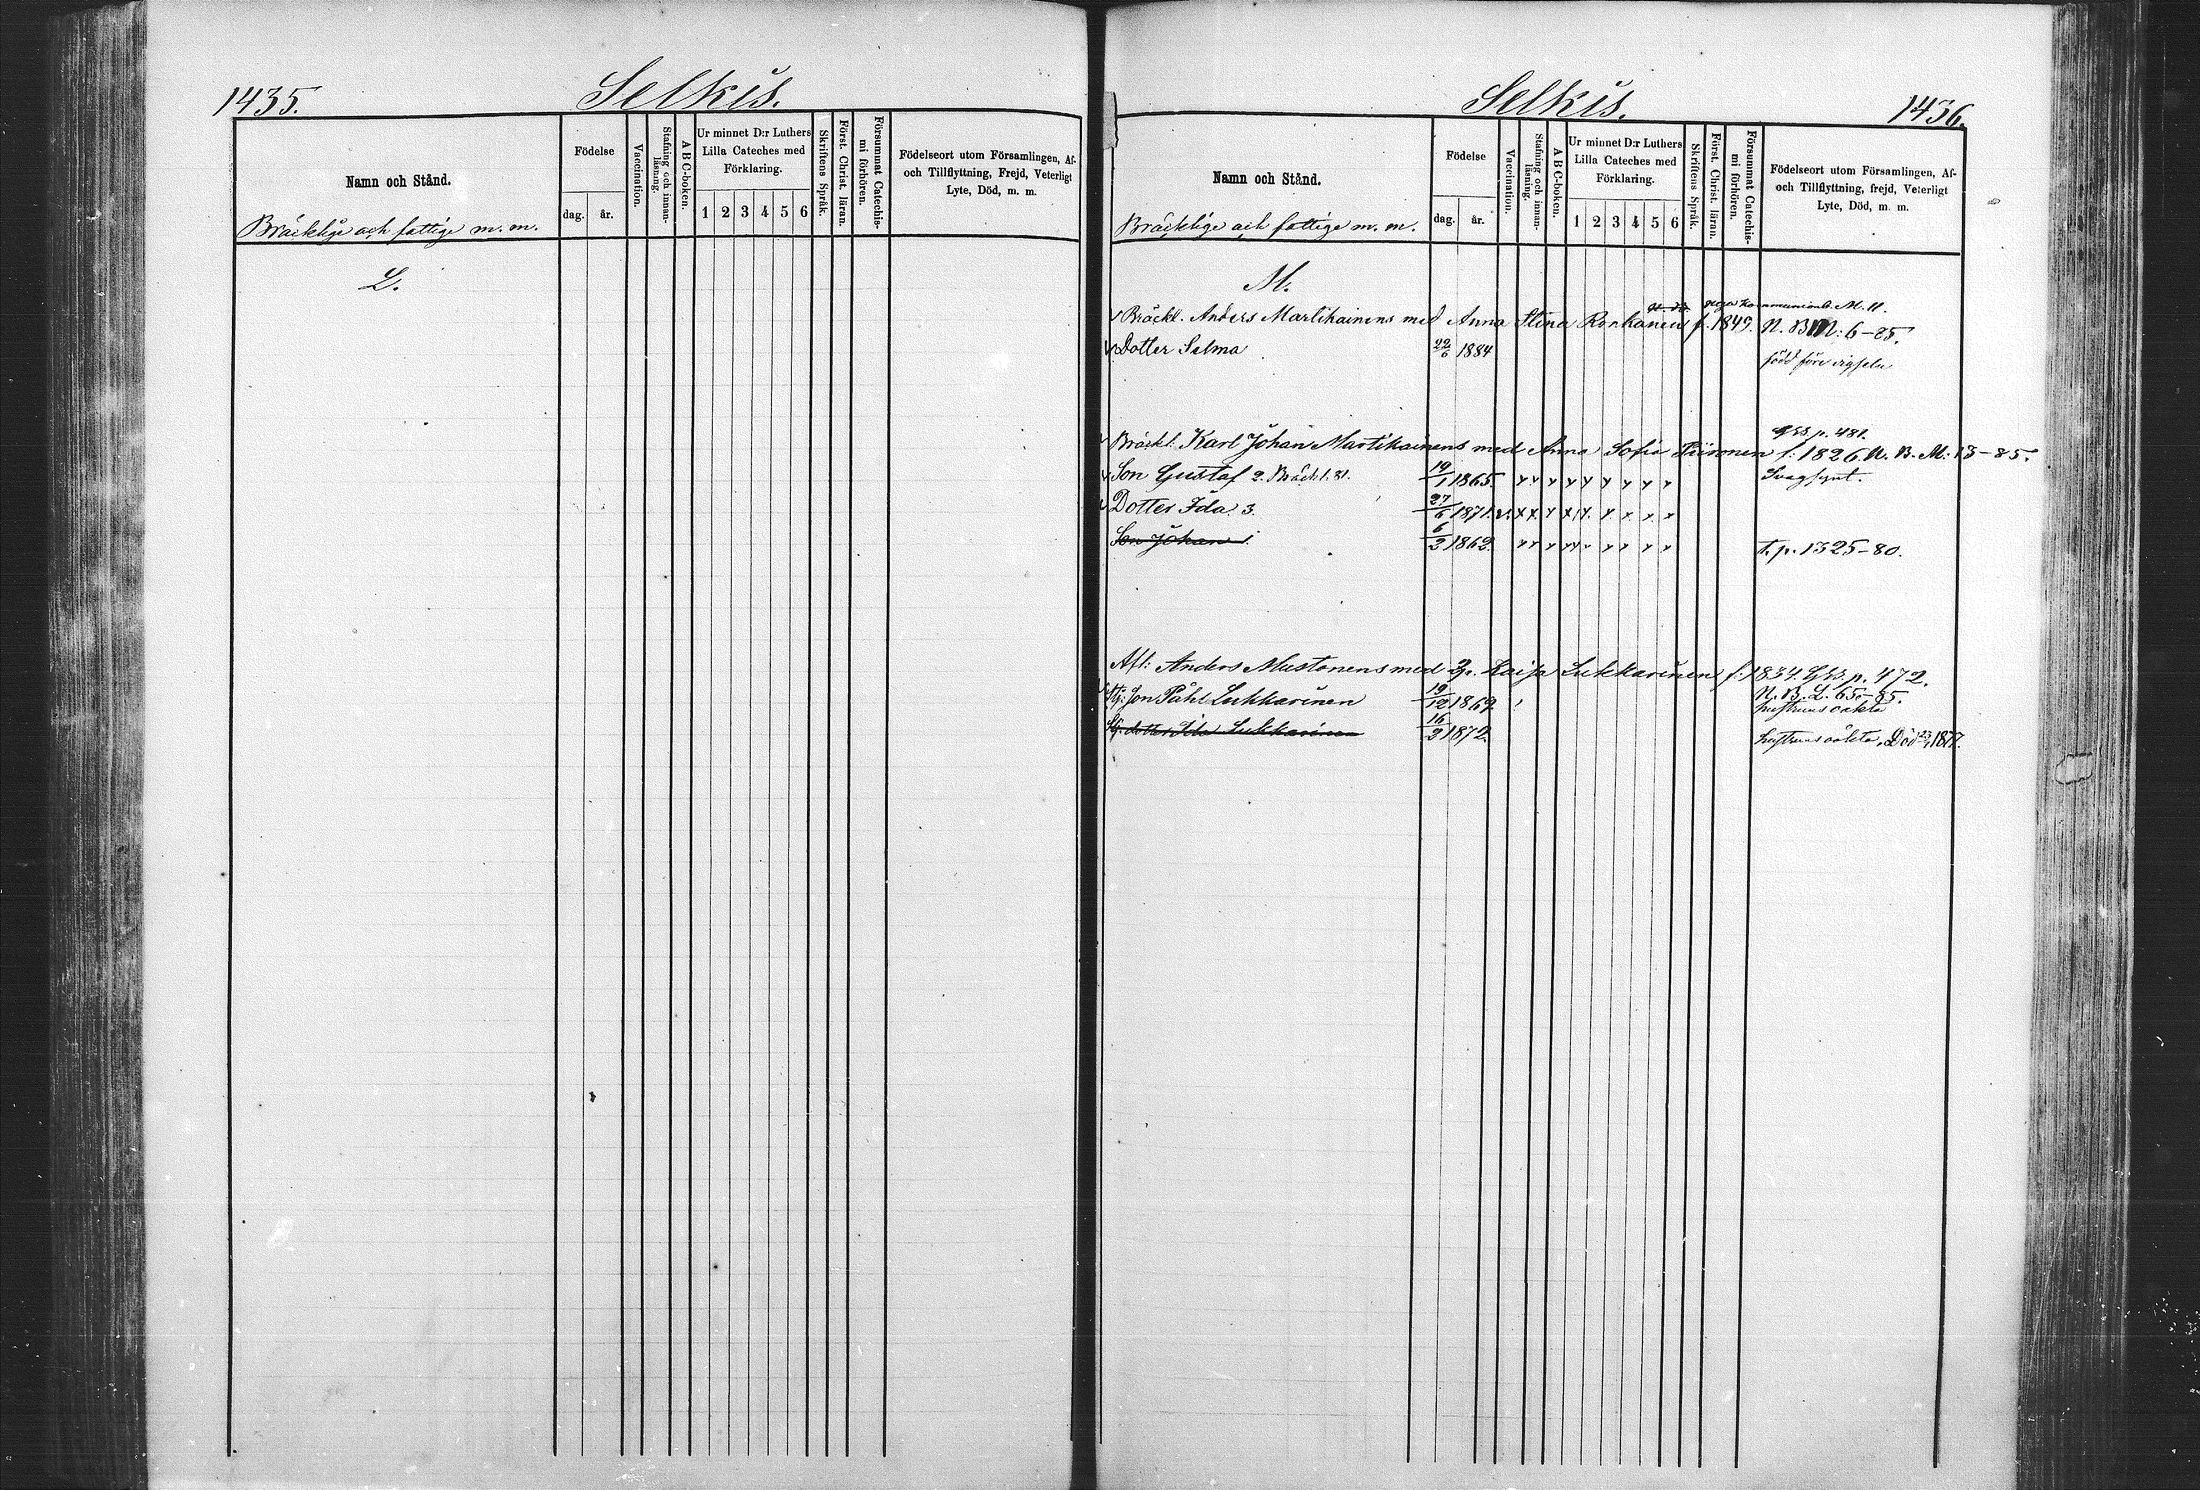 1435.
Selkis.
Namn och Stånd.
Födelse
dag.
år.
Vaccination.
Stafning och innan-
läsning.
ABC-boken.
Ur minnet D:r Luthers
Lilla Cateches med
Förklaring.
1 2 3 4 5 6
Skriftens Språk.
Först. Christ. läran.
Försummat Catechis-
mi förhören.
Födelseort utom Församlingen, Af-
och Tillflyttning, Frejd, Veterligt
Lyte, Död, m. m.
Bräcklige och fattige m. m.
L.
Selkis.
1436.
Namn och Stånd.
Födelse
dag.
år.
Vaccination.
Stafning och innan-
läsning.
ABC-boken.
Ur minnet D:r Luthers
Lilla Cateches med
Förklaring.
1 2 3 4 5 6
Skriftens Språk.
Först. Christ. läran.
Försummat Catechis-
mi förhören.
Födelseort utom Församlingen, Af-
och Tillflyttning, frejd, Veterligt
Lyte, Död, m. m.
Bräcklige och fattige m. m.
M.
M. 11.
Bräckl. Anders Martikainens med Anna Stina Ronkanen f. 1849. N. B. M: 6-85.
Dotter Selma 22/6 1884 född före vigseln
p. 481.
Bräckl. Karl Johan Martikainens med Anna Sofia Piironen f. 1826. N. B. M: 13-85.
Son Gustaf 2. Bräckl. 19/1 1865. Svagsynt.
Dotter Ida 3. 27/6 1871.
Son Johan 1. 6/2 1862. T. p. 1325-80.
Afl: Anders Mustonens med 2 Kaisa Lukkarinen f. 1834. p. 472.
N. B. L. 65-85.
Son Påhl Lukkarinen 19/12 1869. hustruns oäkta
dotter Ida Lukkarinen 16/2 1872. hustruns oäkta. Död 1877.